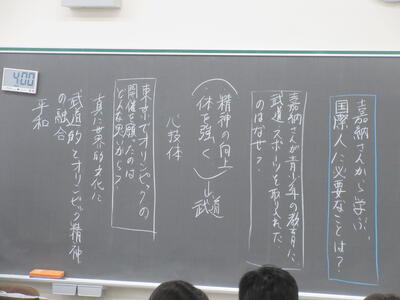 嘉納さんから学ぶ、
国際人に必要なことは？
嘉納さんが青少年の教育に、
武道・スポーツを取り入れた
のはなぜ？
精神の向上
体を強く
武道
心技体
東京でオリンピックの
開催を願ったのは
どんな思いから？
真に世界的文化に
武道的とオリンピック精神
の融合
平和
4:00